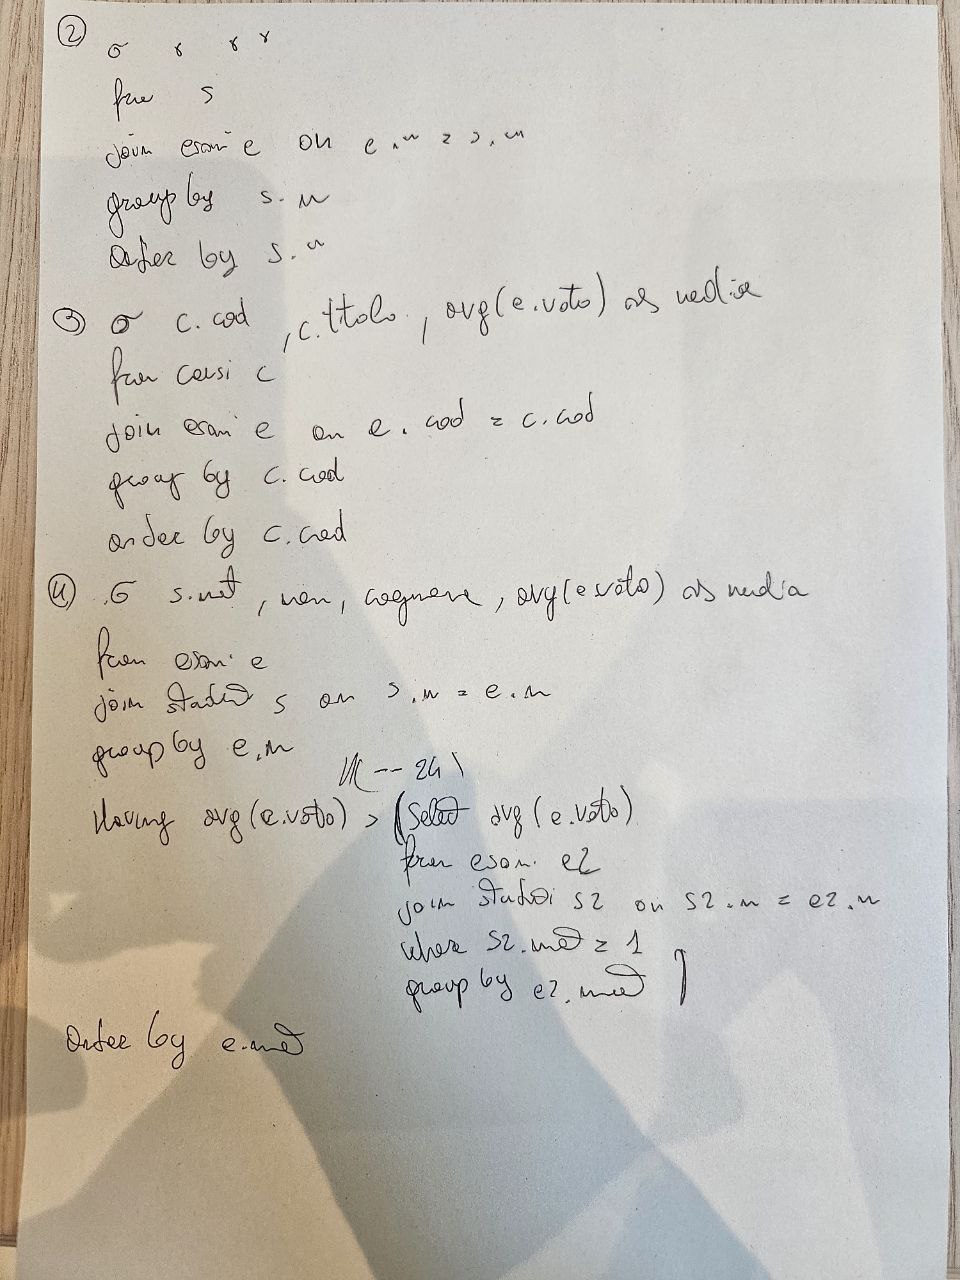 ② σ γ γ γ
from s
join esami e on e.m = s.m
group by s.m
Order by s.m
③ σ c.cod , c.titolo , avg(e.voto) as media
from corsi c
join esami e on e.cod = c.cod
group by c.cod
order by c.cod
④ σ s.mat , nom , cognome , avg(e.voto) as media
from esami e
join studenti s on s.m = e.m
group by e.m
-- 24
Having avg(e.voto) > (Select avg(e.voto)
from esami e2
join studenti s2 on s2.m = e2.m
where s2.mat = 1
group by e2.mat )
Order by e.mat